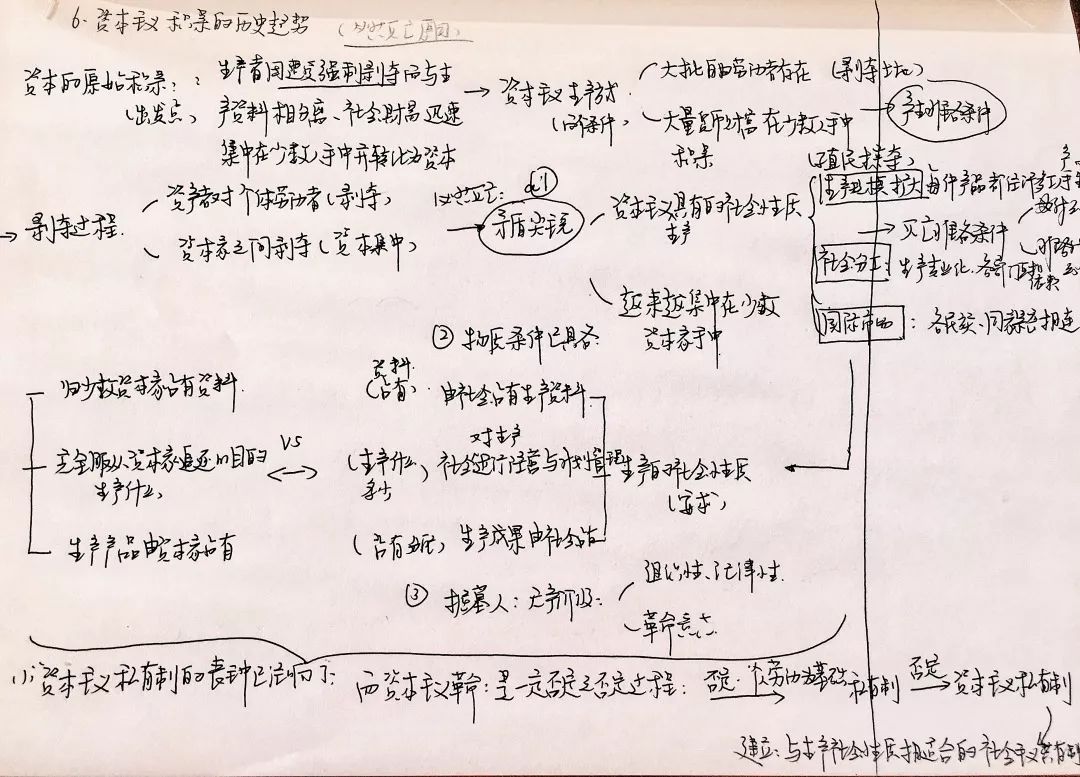 6. 资本主义积累的历史趋势 (必然灭亡原因)
资本的原始积累: 生产者因遭受强制剥夺而与生
(出发点) 产资料相分离、社会财富迅速
集中在少数人手中并转化为资本
→ 资本主义生产方式
(两个条件)
大批自由劳动者存在 (剥夺土地)
大量货币财富在少数人手中
积累
(殖民掠夺)
→ 产生的条件
→ 剥夺过程
资产者对个体劳动者 (剥夺)
资本家之间剥夺 (资本集中)
必然灭亡: ①
→ 矛盾尖锐
资本主义具有的社会性质
生产
越来越集中在少数
资本家手中
生产规模扩大 每件产品都
→ 灭亡的条件
社会分工: 生产专业化、各部门
国际市场: 各民族、国家 相连
② 物质条件已具备
归少数资本家占有资料
完全服从资本家追逐的目的
生产什么
生产产品由资本家占有
VS
资料
(占有) 由社会占有生产资料
对生产
(生产什么, 社会进行经营与计划管理
多少
(占有) 生产成果由社会占有
生产的社会性质
(要求)
③ 掘墓人: 无产阶级:
组织性、纪律性
革命
资本主义私有制的丧钟已经响了; 而资本主义革命: 是一定否定之否定过程: 否定 个人劳动为基础私有制 否定→ 资本主义私有制
建立: 与生产社会性质相适合的社会主义公有制